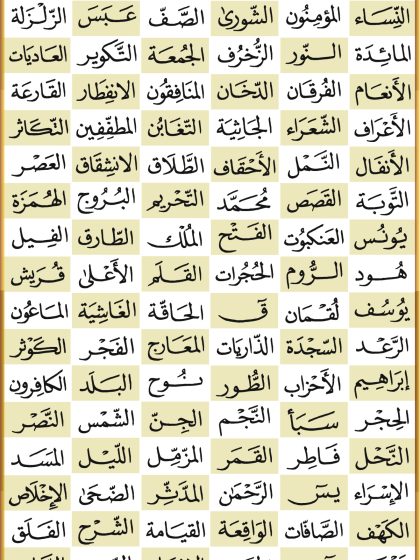 النِّسَاء المؤمِنُون الشّورىٰ الصَّفّ عَبَسَ الزّلْزلة
المائِدَة النّور الزُّخرُف الجُمعَة التَّكوير العاديَات
الأنعَام الفُرقَان الدّخَان المنَافِقُون الانفِطَار القَارعَة
الأَعْراف الشّعَراء الجَاثيَة التّغَابُن المطفِّفِين التّكَاثر
الأنفَال النَّمْل الأَحْقَاف الطَّلَاق الانشِقَاق العَصْر
التَّوبَة القَصَص مُحَمَّد التّحْريم البُرُوج الهُمَزَة
يُونُس العَنكبُوت الفَتْح المُلْك الطّارق الفِيل
هُود الرُّوم الحُجُرات القَلَم الأَعْلىٰ قُرَيش
يُوسُف لُقْمَان قٓ الحَاقّة الغَاشِيَة المَاعُون
الرَّعْد السّجْدَة الذّاريَات المعَارِج الفَجْر الكَوْثر
إبرَاهِيم الأَحْزاب الطُّور نُوح البَلَد الكافِرون
الحِجْر سَبَأ النَّجْم الجِنّ الشّمْس النَّصْر
النَّحْل فَاطِر القَمَر المزّمِّل اللّيْل المَسَد
الإسْرَاء يسٓ الرَّحْمَٰن المدَّثِّر الضّحَىٰ الإخْلَاص
الكَهْف الصَّافّات الوَاقِعَة القيَامة الشّرْح الفَلَق